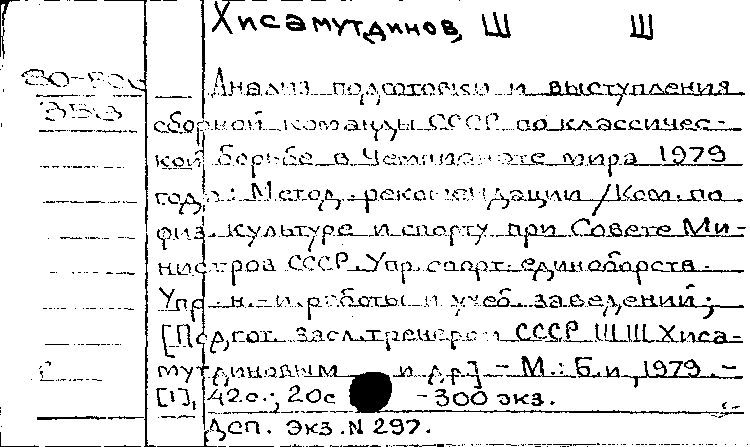 Хисамутдинов, Ш Ш
Анализ подготовки и выступления
353
сборной команды СССР по классичес-
кой борьбе в Чемпионате мира 1979
года: Метод. рекомендации / Ком. по
физ. культуре и спорту при Совете Ми-
нистров СССР. Упр. спорт. единоборств.
Упр. н.-и. работы и учеб. заведений;
[Подгот. засл. тренером СССР Ш Ш Хиса-
мутдиновым и др] - М.: Б. и, 1979. -
[1], 42с.; 20с - 300 экз.
Дсп. Экз. N 297.